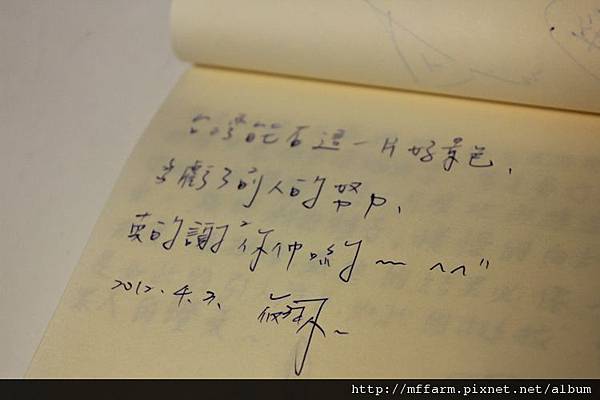 台灣能有這一片好景色,
多虧了前人的努力,
真的謝謝你們喲~ ^^"
2012.4.3.
http://mffarm.pixnet.net/album